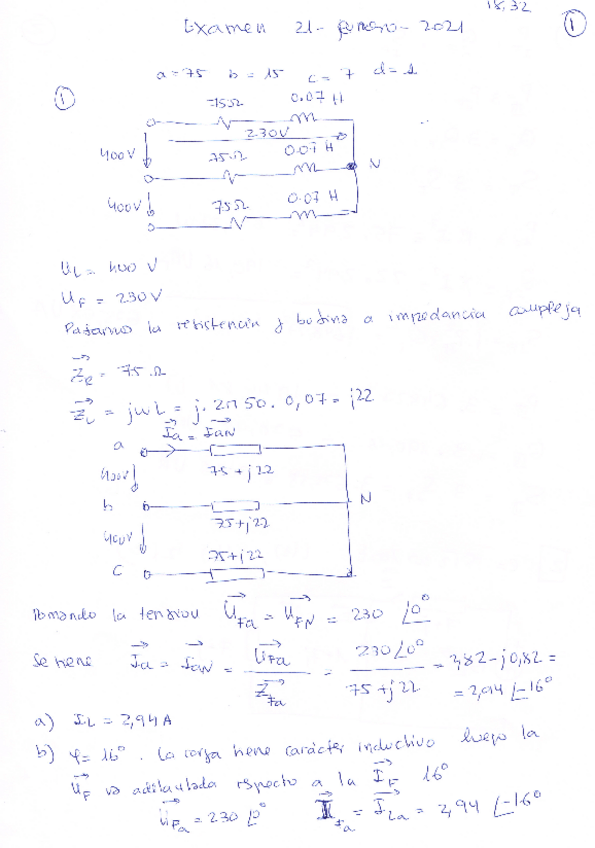 18,32
Examen 21-febrero-2021
1
a=75 b=15 c=7 d=1
1
75Ω 0.07 H
230V
400V 75Ω 0.07 H
N
400V 75Ω 0.07 H
UL = 400 V
UF = 230 V
Pasamos la resistencia y bobina a impedancia compleja
ZR = 75 Ω
ZL = jωL = j·2π50·0,07 = j22
Ia = IaN
a
400V 75+j22
b N
75+j22
400V
75+j22
C
Tomando la tension UFa = UFN = 230 ∠0°
Se tiene Ia = IaN = UFa / ZFa = 230∠0° / 75+j22 = 2,82-j0,82 =
= 2,94 ∠-16°
a) IL = 2,94 A
b) φ= 16°. La carga tiene carácter inductivo luego la
UF va adelantada respecto a la IF 16°
UFa = 230 ∠0° IFa = ILa = 2,94 ∠-16°